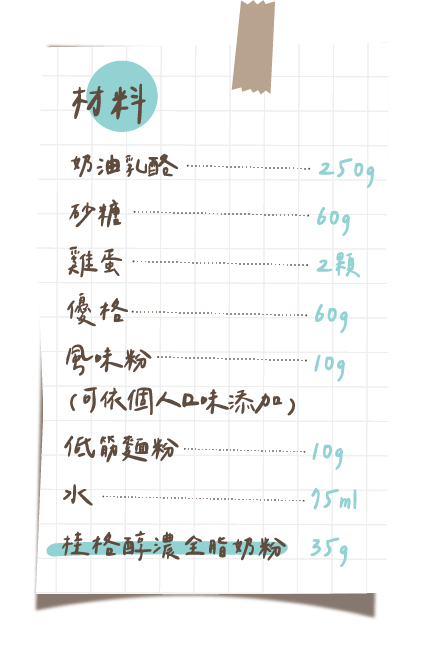 材料
奶油乳酪 250g
砂糖 60g
雞蛋 2顆
優格 60g
風味粉 10g
(可依個人口味添加)
低筋麵粉 10g
水 75ml
桂格醇濃全脂奶粉 35g